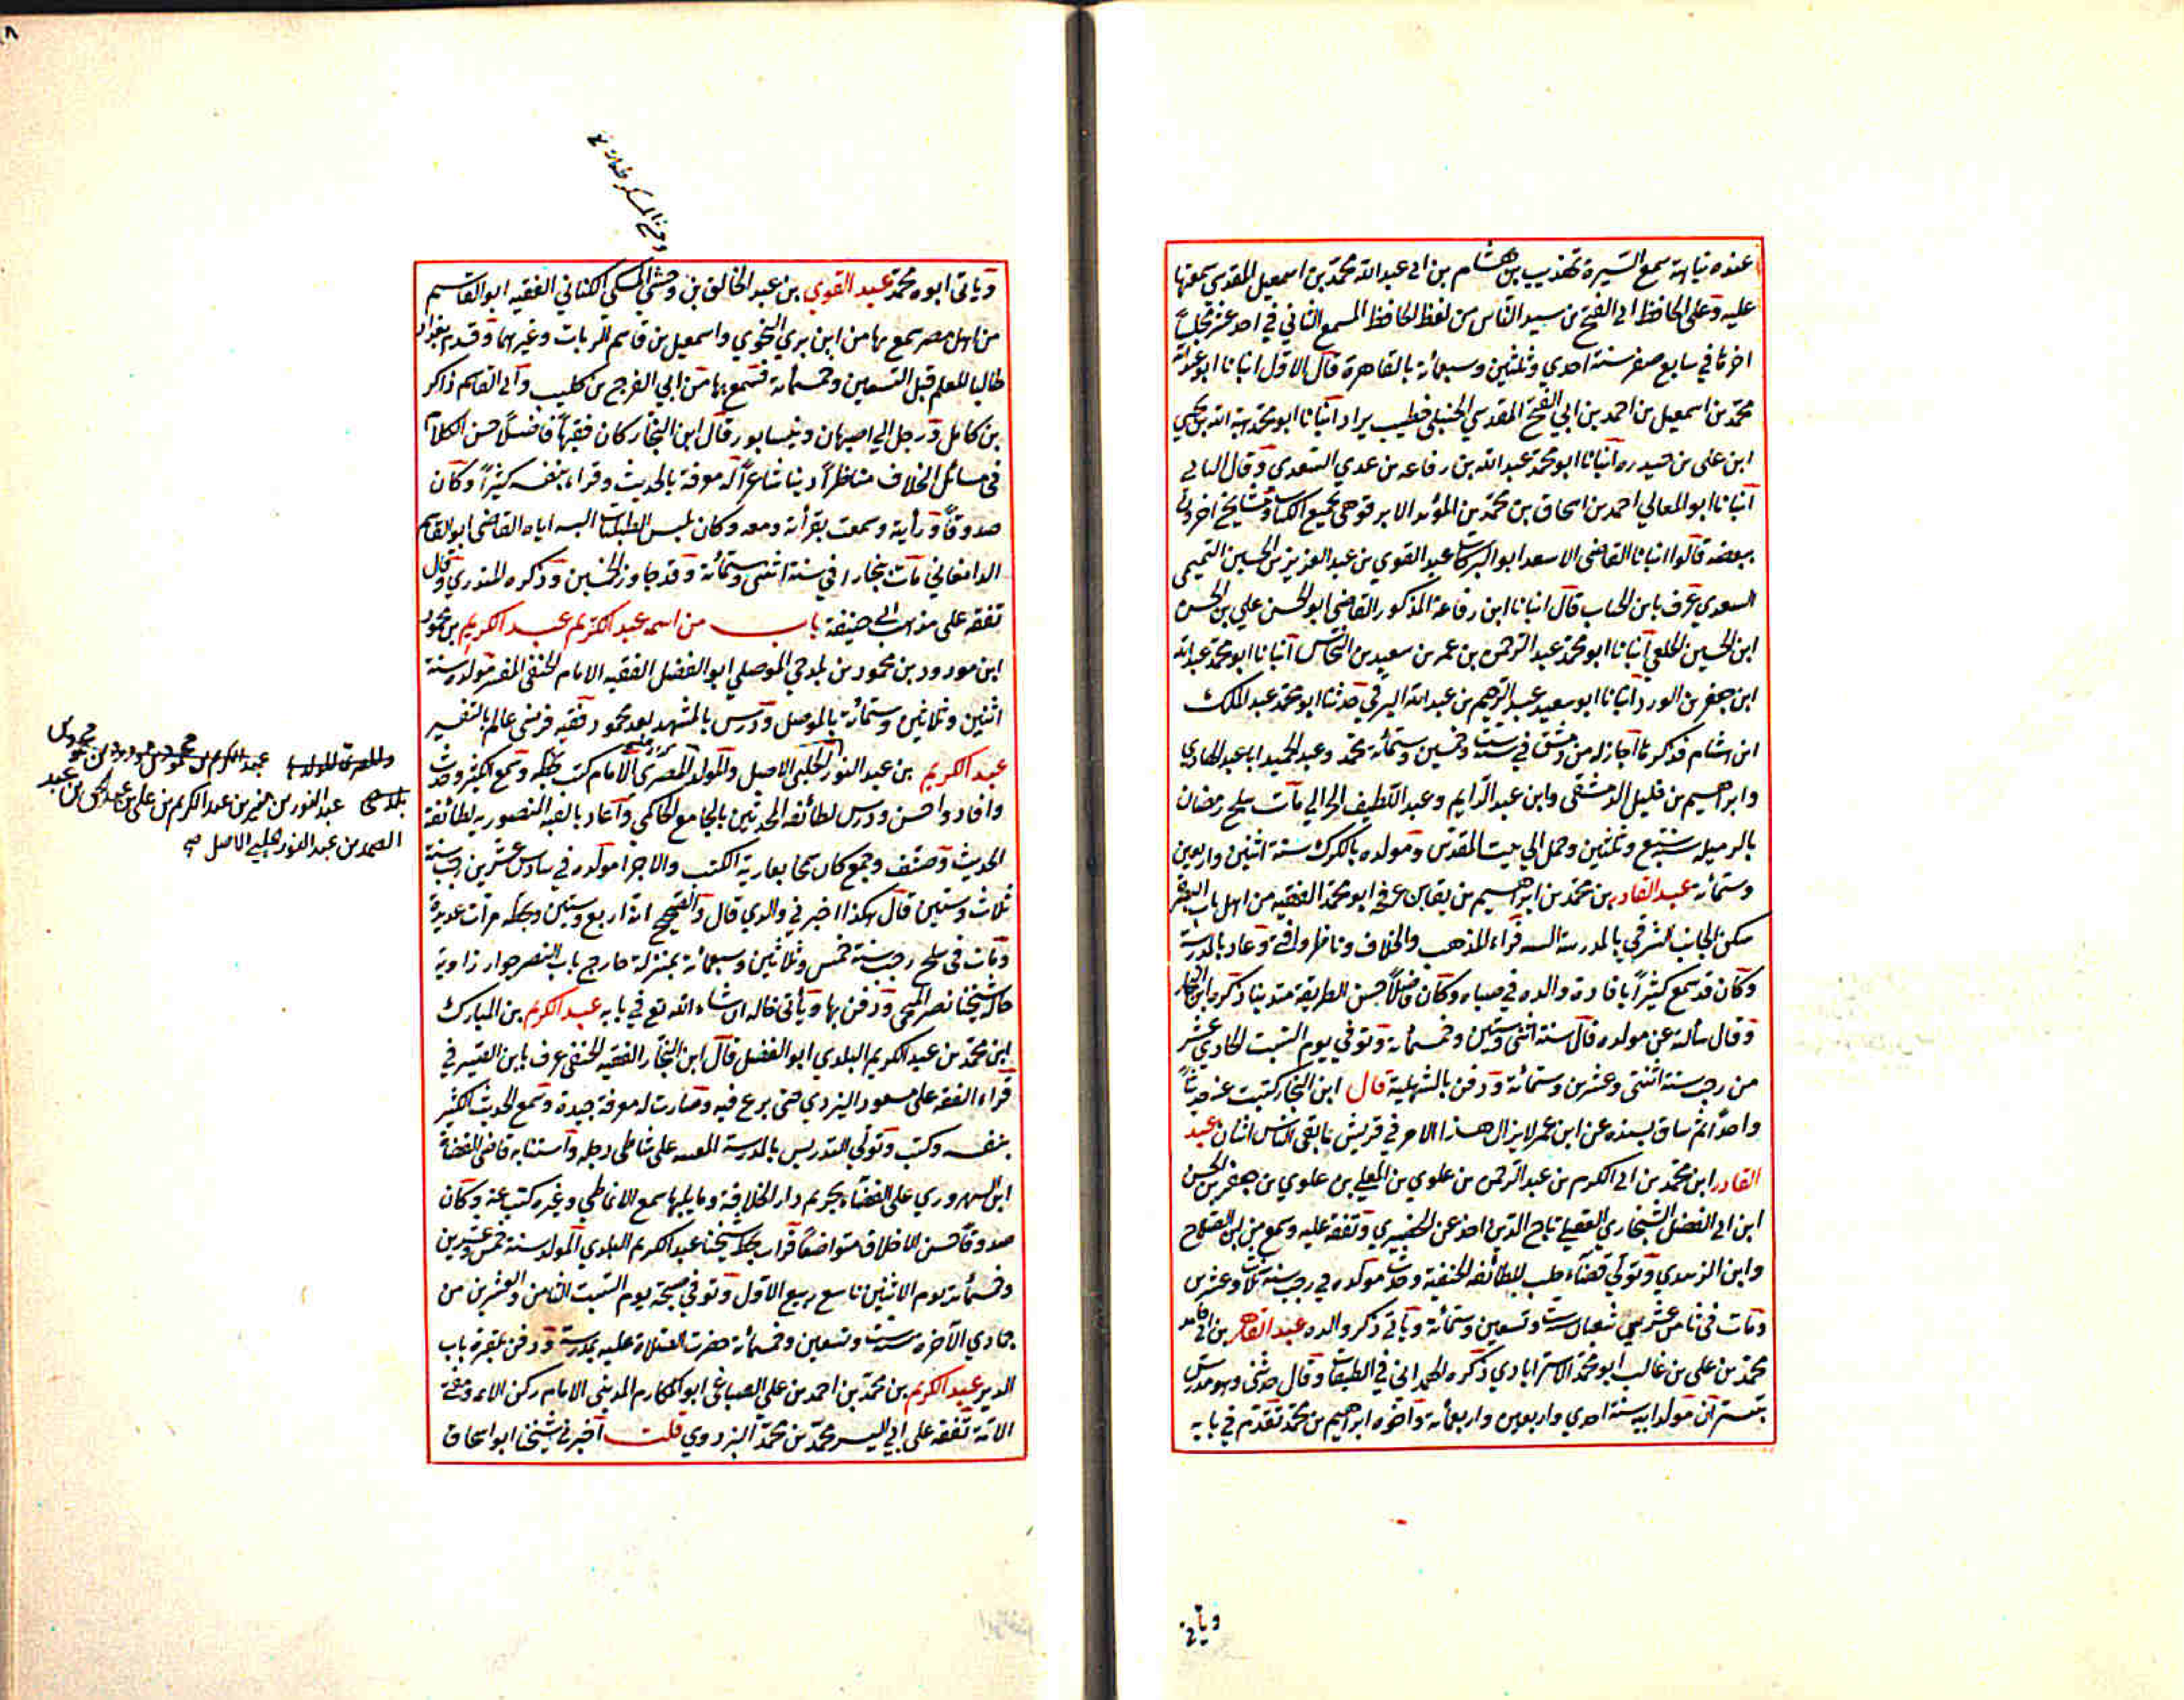 عنده نيابة سمع السيرة تهذيب بن هشام من ابي عبدالله محمد بن اسمعيل المقدسي سمعتها
عليه وعلى الحافظ ابي الفتح بن سيد الناس من لفظ الحافظ المسمع الثاني في احد عشر مجلساً
اخرها في سابع صفر سنة احدي وثلثين وسبعمائة بالقاهرة قال الاول انبانا ابو عبدالله
محمد بن اسمعيل بن احمد بن ابي الفتح المقدسي الحنبلي خطيب مردا انبانا ابو محمد هبة الله بن يحيي
ابن علي بن حيدره انبانا ابو محمد عبدالله بن رفاعه بن عدي السعدي وقال الثاني
انبانا ابو المعالي احمد بن اسحاق بن محمد بن المؤيد الابرقوهي بجميع الكتاب ومشايخ اخرون
ببعضه قالوا انبانا القاضي الاسعد ابو البركات عبد القوي بن عبد العزيز بن الحسين التميمي
السعدي عرف بابن الجباب قال انبانا ابن رفاعة المذكور القاضي ابو الحسن علي بن الحسن
ابن الحسين الخلعي انبانا ابو محمد عبد الرحمن بن عمر بن سعيد بن النحاس انبانا ابو محمد عبدالله
ابن جعفر بن الورد انبانا ابو سعيد عبد الرحيم بن عبدالله البرقي حدثنا ابو محمد عبد الملك
ابن هشام فذكرها اجاز له من دمشق في سنة ست وخمسين وستمائة محمد وعبد الحميد ابنا عبد الهادي
وابراهيم بن خليل الدمشقي وابن عبد الدايم وعبد اللطيف الحراني مات سلخ رمضان
بالرميله سنة سبع وثلثين وحمل الي بيت المقدس ومولده بالكرك سنة اثنين واربعين
وستمائة عبد القادر بن محمد بن ابراهيم بن بقا ابن عرفخ ابو محمد الفقيه من اهل باب البصره
سكن الجانب الشرقي بالمدرسة قراء المذهب والخلاف وناظر وافتي واعاد بالمدرسة
وكان قد سمع كثيراً بافادة والده في صباه وكان فاضلاً حسن الطريقة متدينا ذكره ابن النجار
وقال سالته عن مولده قال سنة اثنتي وستين وخمسمائة وتوفي يوم السبت الحادي عشر
من رجب سنة اثنتي وعشرين وستمائة ودفن بالشهيلية قال ابن النجار كتبت عنه حديثاً
واحداً ثم ساق بسنده عن ابن عمر لا يزال هذا الامر في قريش ما بقي الناس اثنان عبد
القادر ابن محمد بن ابي الكرم بن عبد الرحمن بن علوي بن المعلي بن علوي بن جعفر بن الحسن
ابن ابي الفضل السنجاري العقيلي تاج الدين اخذ عن الحصيري وتفقه عليه وسمع من ابن الصلاح
وابن الزبيدي وتولي قضاء حلب للطائفة الحنفية وحدث مولده في رجب سنة ثلاث وعشرين
ومات في ثامن عشري شعبان سنة ست وتسعين وستمائة وياتي ذكر والده عبد القاهر بن ابي حامد
محمد بن علي بن غالب ابو محمد الاستراباذي ذكره الهمداني في الطبقات وقال حدثني وهو مدرس
بتستر ان مولد ابيه سنة احدي واربعين واربعمائة واخوه ابراهيم بن محمد تقدم في بابه
وياتي
وياتي ابوه محمد عبد القوي بن عبد الخالق بن وحشي المسكي الكناني الفقيه ابو القاسم
من اهل مصر سمع بها من ابن بري النحوي واسمعيل بن قاسم الزيات وغيرهما وقدم بغداد
طالبا للعلم قبل التسعين وخمسمائة فسمع بها من ابي الفرج بن كليب وابي القاسم ذاكر
بن كامل ورحل الي اصبهان ونيسابور قال ابن النجار كان فقيهاً فاضلاً حسن الكلام
في مسائل الخلاف مناظراً دينا شاعراً له معرفة بالحديث وقراء بنفسه كثيراً وكان
صدوقاً ورأيته وسمعت بقرأته ومعه وكان يلبس الطيلسان البسه اياه القاضي ابو القاسم
الدامغاني مات ببخارا في سنة اثنتي وستمائة وقد جاوز الخمسين وذكره المنذري وقال
تفقه على مذهب ابي حنيفة باب من اسمه عبد الكريم عبد الكريم بن محمود
ابن مودود بن محمود بن بلدجي الموصلي ابو الفضل الفقيه الامام الحنفي المفسر مولده سنة
اثنين وثلاثين وستمائة بالموصل ودرس بالمشهد بعد محمود فقيه فرضي عالم بالتفسير
عبد الكريم بن عبد النور الحلبي الاصل والمولد المصري الامام كتب بخطه وسمع الكثير وحدث
وافاد واحسن ودرس لطائفة المحدثين بالجامع الحاكمي واعاد بالقبه المنصوريه لطائفة
الحديث وصنف وجمع كان سمحا بعارية الكتب والاجزا مولده في سادس عشرين رجب سنة
ثلاث وستين قال هكذا اخبرني والدي قال والصحيح انه اربع وستين وبخطه مرات عديدة
ومات في سلخ رجب سنة خمس وثلاثين وسبعمائة بمنزله خارج باب النصر جوار زاوية
خاله شيخنا نصر المنبجي ودفن بها وياتي خاله ان شاء الله تع في بابه عبد الكريم بن المبارك
ابن محمد بن عبد الكريم البلدي ابو الفضل قال ابن النجار الفقيه الحنفي عرف بابن الصيرفي
قراء الفقه على مسعود اليزدي حتى برع فيه وصارت له معرفة جيدة وسمع الحديث الكثير
بنفسه وكتب وتولي التدريس بالمدرسة على شاطي دجله واستنابه قاضي القضاة
ابن الشهروري على القضاء بحريم دار الخلافة وما يليها سمع الانماطي وغيره كتبت عنه وكان
صدوقاً حسن الاخلاق متواضعاً قرات بخط شيخنا عبد الكريم البلدي المولد سنة خمس وعشرين
وخمسمائة يوم الاثنين تاسع ربيع الاول وتوفي صبيحة يوم السبت الثامن والعشرين من
جمادي الاخره سنة ست وتسعين وخمسمائة حضرت الصلاة عليه بمدرسته ودفن بمقبرة باب
الدير عبد الكريم بن محمد بن احمد بن علي الصباغي ابو المكارم المديني الامام ركن الائمة ومفتي
الامة تفقه على ابي اليسر محمد بن محمد البزدوي قلت اخبرني شيخنا ابو اسحاق
عبد الكريم بن محمود بن مودود بن محمود بن
بلدجي عبد النور بن منير بن عبد الكريم بن علي بن عبد الحق بن عبد
الصمد بن عبد النور الحلبي الاصل صح